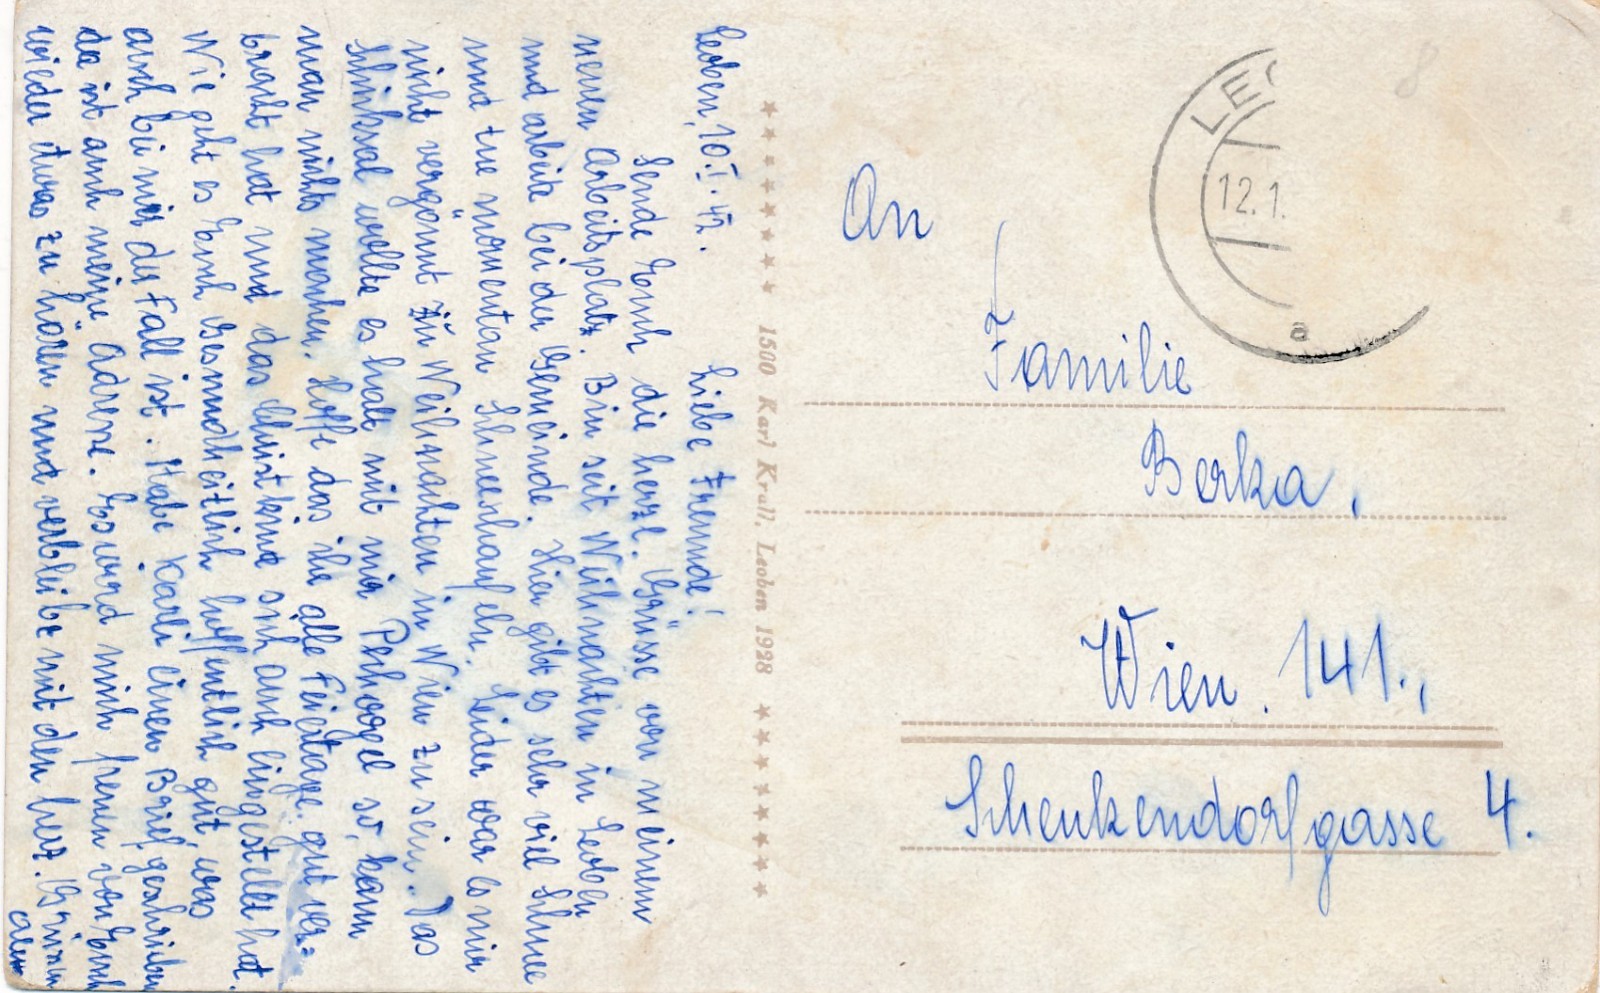 Leoben, 10.I.42. Liebe Freunde!
Sende Euch die herzl. Grüsse von meinem
neuen Arbeitsplatz. Bin seit Weihnachten in Leoben
und arbeite bei der Gemeinde. Hier gibt es sehr viel Schnee
und tue momentan Schneeschaufeln. Leider war es mir
nicht vergönnt zu Weihnachten in Wien zu sein. Das
Schicksal wollte es halt mit mir so, kann
man nichts machen. Hoffe das ihr alle Feiertage gut ver=
bracht hat und das Christkind sich auch eingestellt hat.
Wie geht es Euch Gesundheitlich hoffentlich gut, was
auch bei mir der Fall ist. Habe Karli einen Brief geschrieben
da ist auch meine Adresse. Es wird mich freuen von Euch
wieder etwas zu hören und verbleibe mit den herz. Grüssen
1500 Karl Krall, Leoben 1928
LEO
12.1.
a
8
An
Familie
Berka,
Wien. 141.,
Schenkendorfgasse 4.